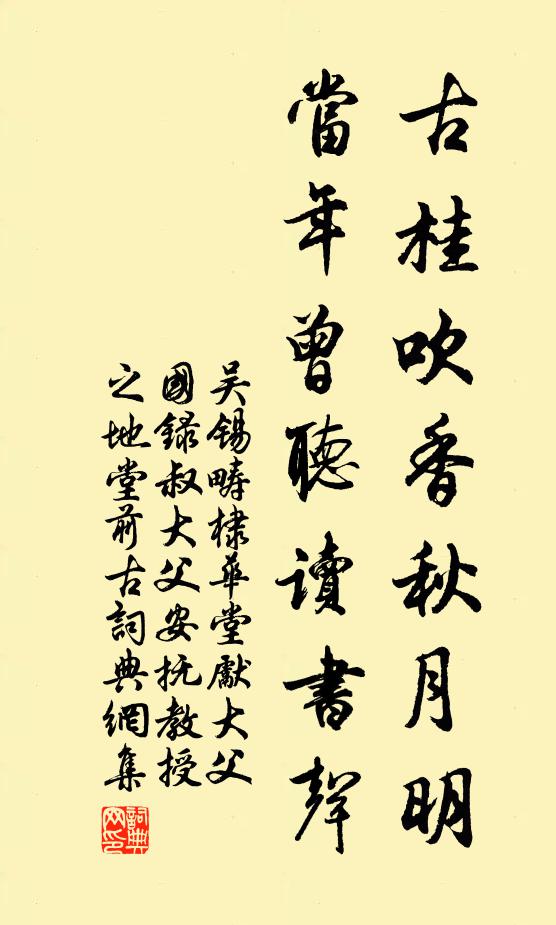 古桂吹香秋月明
當年曾聽讀書聲
吴錫疇棣華堂獻大父
國録叔大父安抚教授
之地堂前古詞典網集
詞典网印